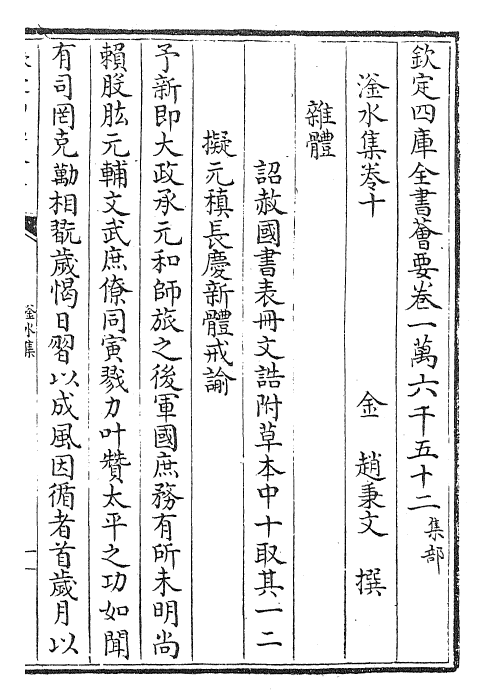 欽定四庫全書薈要卷一萬六千五十二 集部
滏水集卷十 金 趙秉文 撰
雜體
詔赦國書表冊文誥附草本中十取其一二
擬元稹長慶新體戒諭
予新即大政承元和師旅之後軍國庶務有所未明尚
賴股肱元輔文武庶僚同寅戮力叶贊太平之功如聞
有司罔克勤相翫歲愒日習以成風因循者首歲月以
滏水集
一